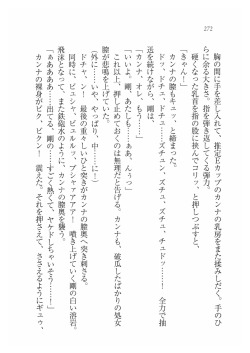 272
胸の間に手を差し入れて、推定Ｅカップのカンナの乳房をまた揉みしだく。手のひ
らに余る大きさ、指を弾き返してくる弾力。
硬くなった乳首を指の股に挟んでコリッ、と押しつぶすと、
「きゃん！」
カンナの膣もキュッ、と締まった。
ドッ、ドチュ、ドチュ……ズチュン、ズチュ、ズチュ、チュドッ……　全力で抽
送を続けながら、剛は、
「カンナ、オレ、もうっ」
「いいよ、剛、あたしも……あぁっ、んぅっ」
これ以上、押し止めておくのは無理だった。剛だけでなく、カンナも、破瓜したばかりの処女
膣が悲鳴を上げていた。
「外に……いや、やっぱり、中に……！」
ドチャ、ンッ……　最後の重々しいひと突きがカンナの膣奥へ突き刺さる。
同時に、ビュシャ、ビュルルッ、ブシャアアアア！　噴き上げていく剛の白い溶岩。
飛沫となって、また鉄砲水のように、カンナの膣奥を襲う。
「ぁあああああ……出てる、剛の……すごく熱くて、ヤケドしちゃいそう……！」
カンナの裸身がビク、ビクン！　震えた。それを押さえて、ささえるようにギュウ、